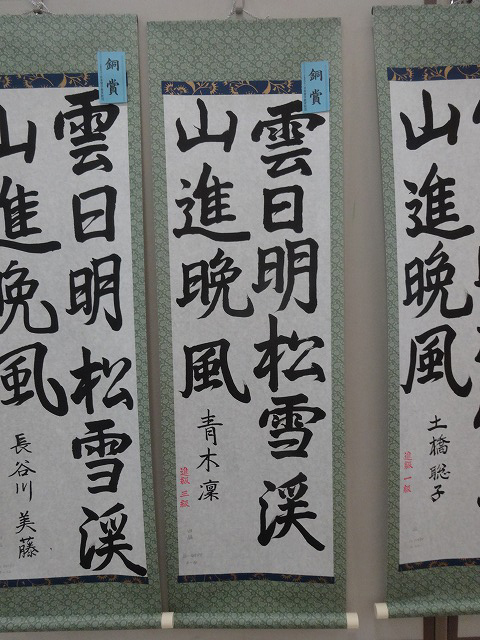 銅賞
雲日明松雪渓
山進晩風
長谷川美藤
銅賞
雲日明松雪渓
山進晩風
青木凜
進級 三級
山進晩風
土橋聡子
進級 一級